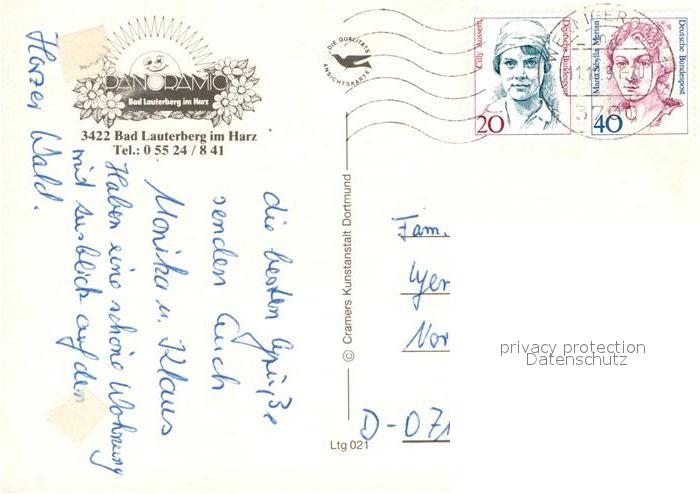 PANORAMIC
Bad Lauterberg im Harz
3422 Bad Lauterberg im Harz
Tel.: 0 55 24 / 8 41
DIE QUALITÄTS
ANSICHTSKARTE
Cilly Aussem
Deutsche Bundespost
20
Maria Sibylla Merian
Deutsche Bundespost
40
WERNIGERODE
3700
die besten Grüße
senden Euch
Monika u. Klaus
Haben eine schöne Wohnung
mit Ausblick auf den
Harzer Wald.
© Cramers Kunstanstalt Dortmund
Ltg 021
Fam.
Wer
Nor
D-071
privacy protection
Datenschutz